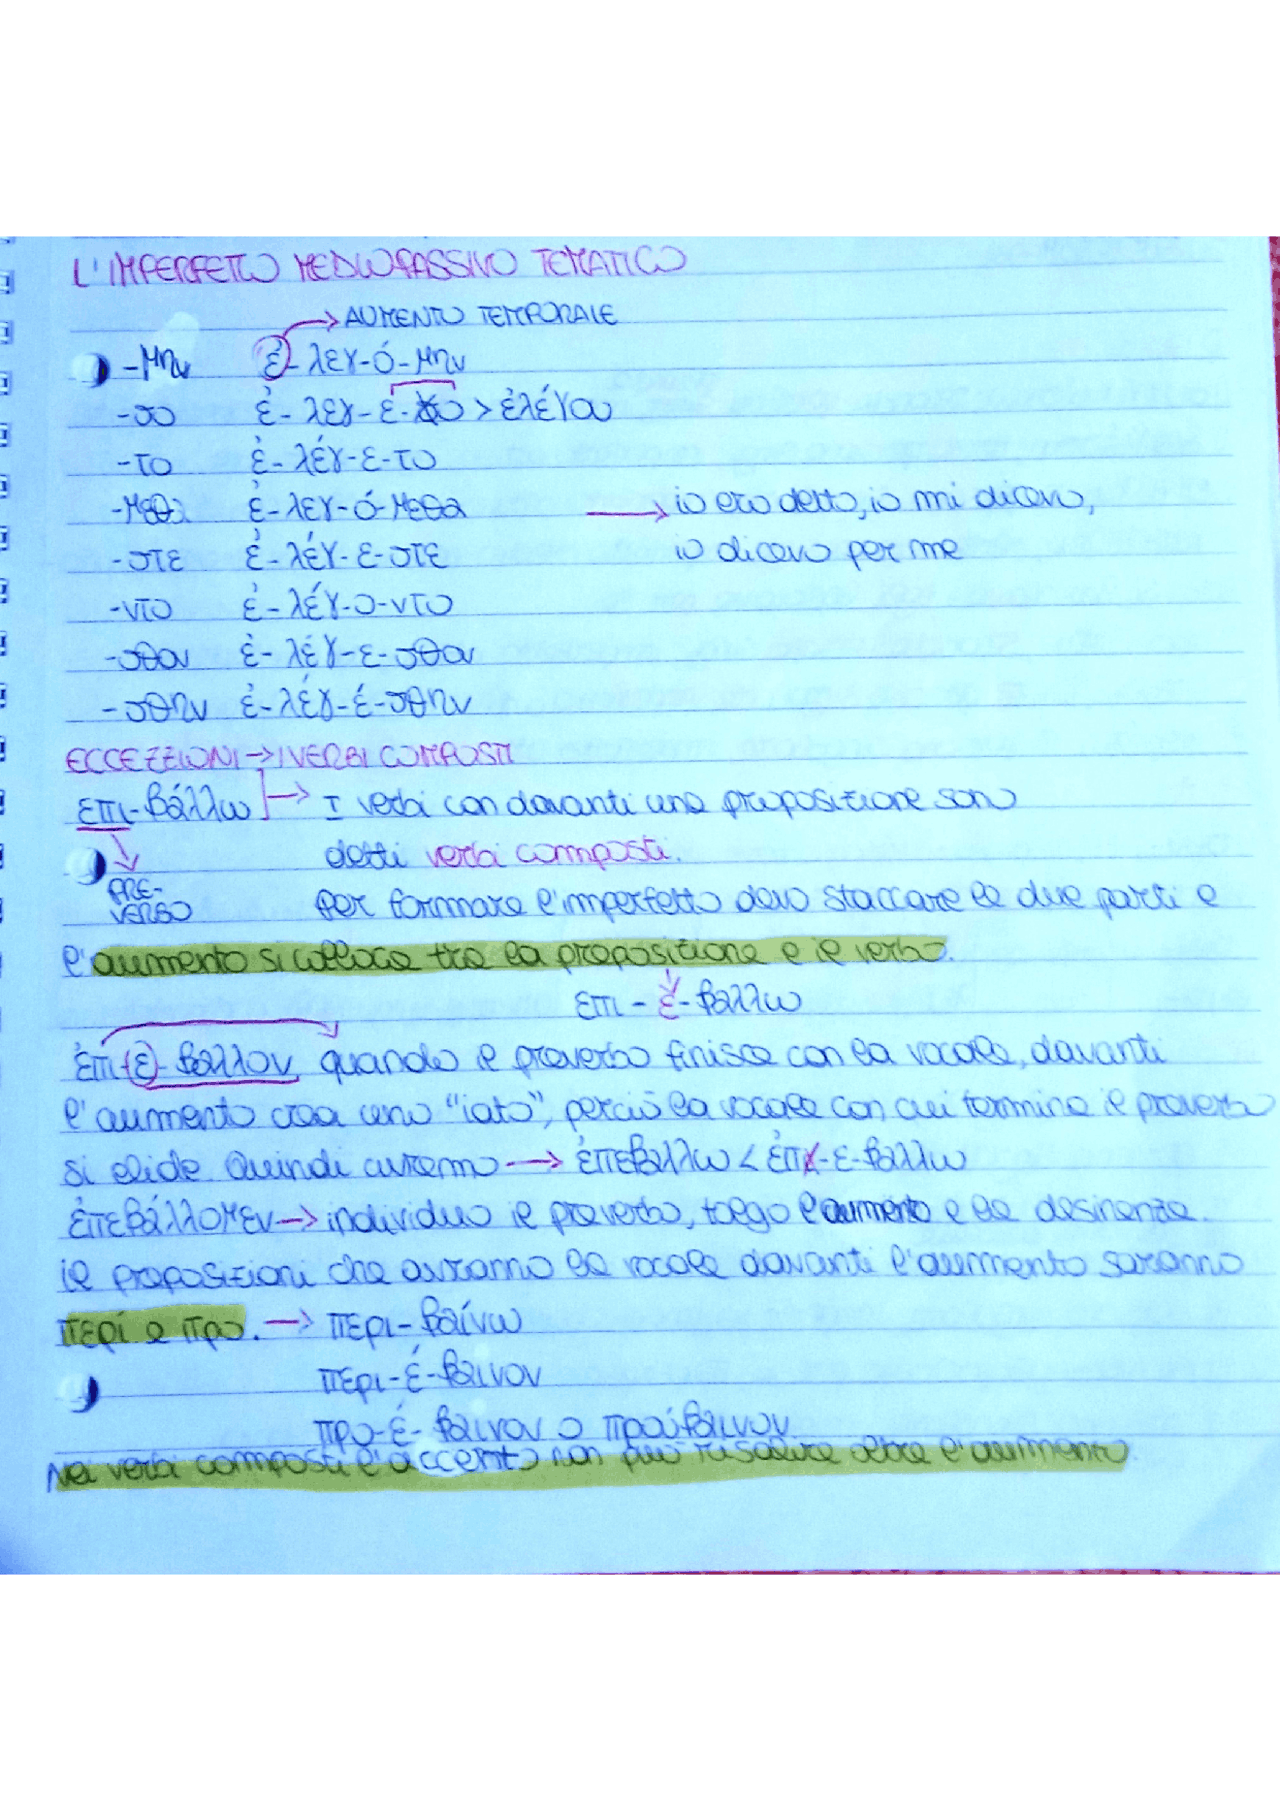 L'IMPERFETTO MEDIOPASSIVO TEMATICO
→ AUMENTO TEMPORALE
-μην ἐ-λεγ-ό-μην
-σο ἐ-λεγ-ε-σο > ἐλέγου
-το ἐ-λέγ-ε-το
-μεθα ἐ-λεγ-ό-μεθα → io ero detto, io mi dicevo,
-στε ἐ-λέγ-ε-στε io dicevo per me
-ντο ἐ-λέγ-ο-ντο
-σθον ἐ-λέγ-ε-σθον
-σθην ἐ-λέγ-έ-σθην
ECCEZZIONI → I VERBI COMPOSTI
επι-βάλλω → I verbi con davanti una preposizione sono
detti verbi composti.
PRE-
VERBO Per formare l'imperfetto devo staccare le due parti e
l'aumento si colloca tra la preposizione e il verbo.
επι-έ-βαλλω
ἐπι-ε-βαλλον quando il preverbo finisce con la vocale, davanti
l'aumento crea uno "iato", perciò la vocale con cui termina il preverbo
si elide. Quindi avremo → ἐπεβαλλω < ἐπι-ε-βαλλω
ἐπεβάλλομεν → individuo il preverbo, tolgo l'aumento e la desinenza.
le preposizioni che avranno la vocale davanti l'aumento saranno
περί e προ. → περι-βαίνω
περι-έ-βαινον
προ-έ-βαινον o προύβαινον
Nei verbi composti l'accento non può risalire oltre l'aumento.